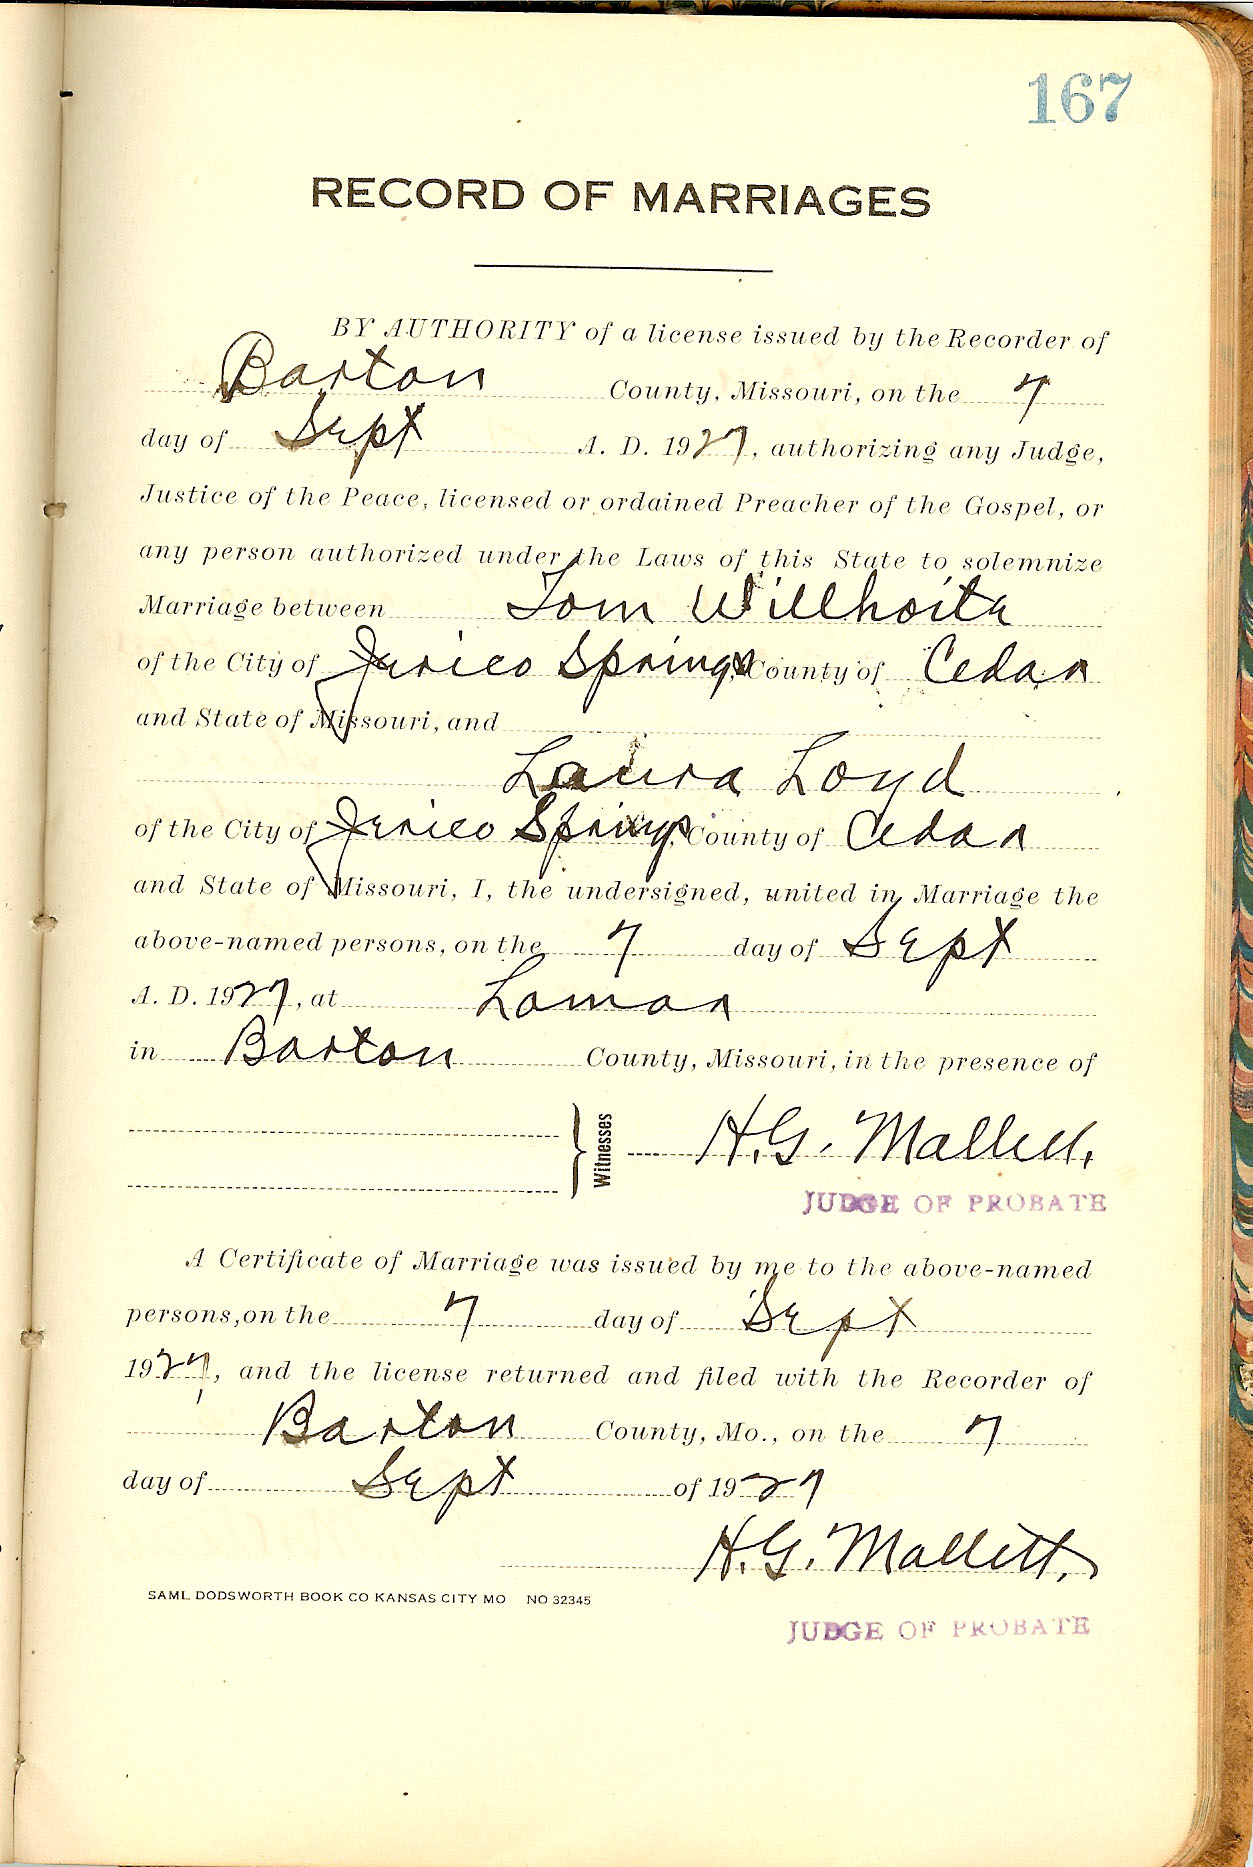 167
RECORD OF MARRIAGES
BY AUTHORITY of a license issued by the Recorder of
Barton County, Missouri, on the 7
day of Sept A. D. 1927, authorizing any Judge,
Justice of the Peace, licensed or ordained Preacher of the Gospel, or
any person authorized under the Laws of this State to solemnize
Marriage between Tom Willhoite
of the City of Jerico Springs, County of Cedar
and State of Missouri, and
Laura Loyd
of the City of Jerico Springs, County of Cedar
and State of Missouri, I, the undersigned, united in Marriage the
above-named persons, on the 7 day of Sept
A. D. 1927, at Lamar
in Barton County, Missouri, in the presence of
Witnesses H. G. Mallett.
JUDGE OF PROBATE
A Certificate of Marriage was issued by me to the above-named
persons, on the 7 day of Sept
1927, and the license returned and filed with the Recorder of
Barton County, Mo., on the 7
day of Sept of 1927
H. G. Mallett.
SAML DODSWORTH BOOK CO KANSAS CITY MO NO 32345
JUDGE OF PROBATE